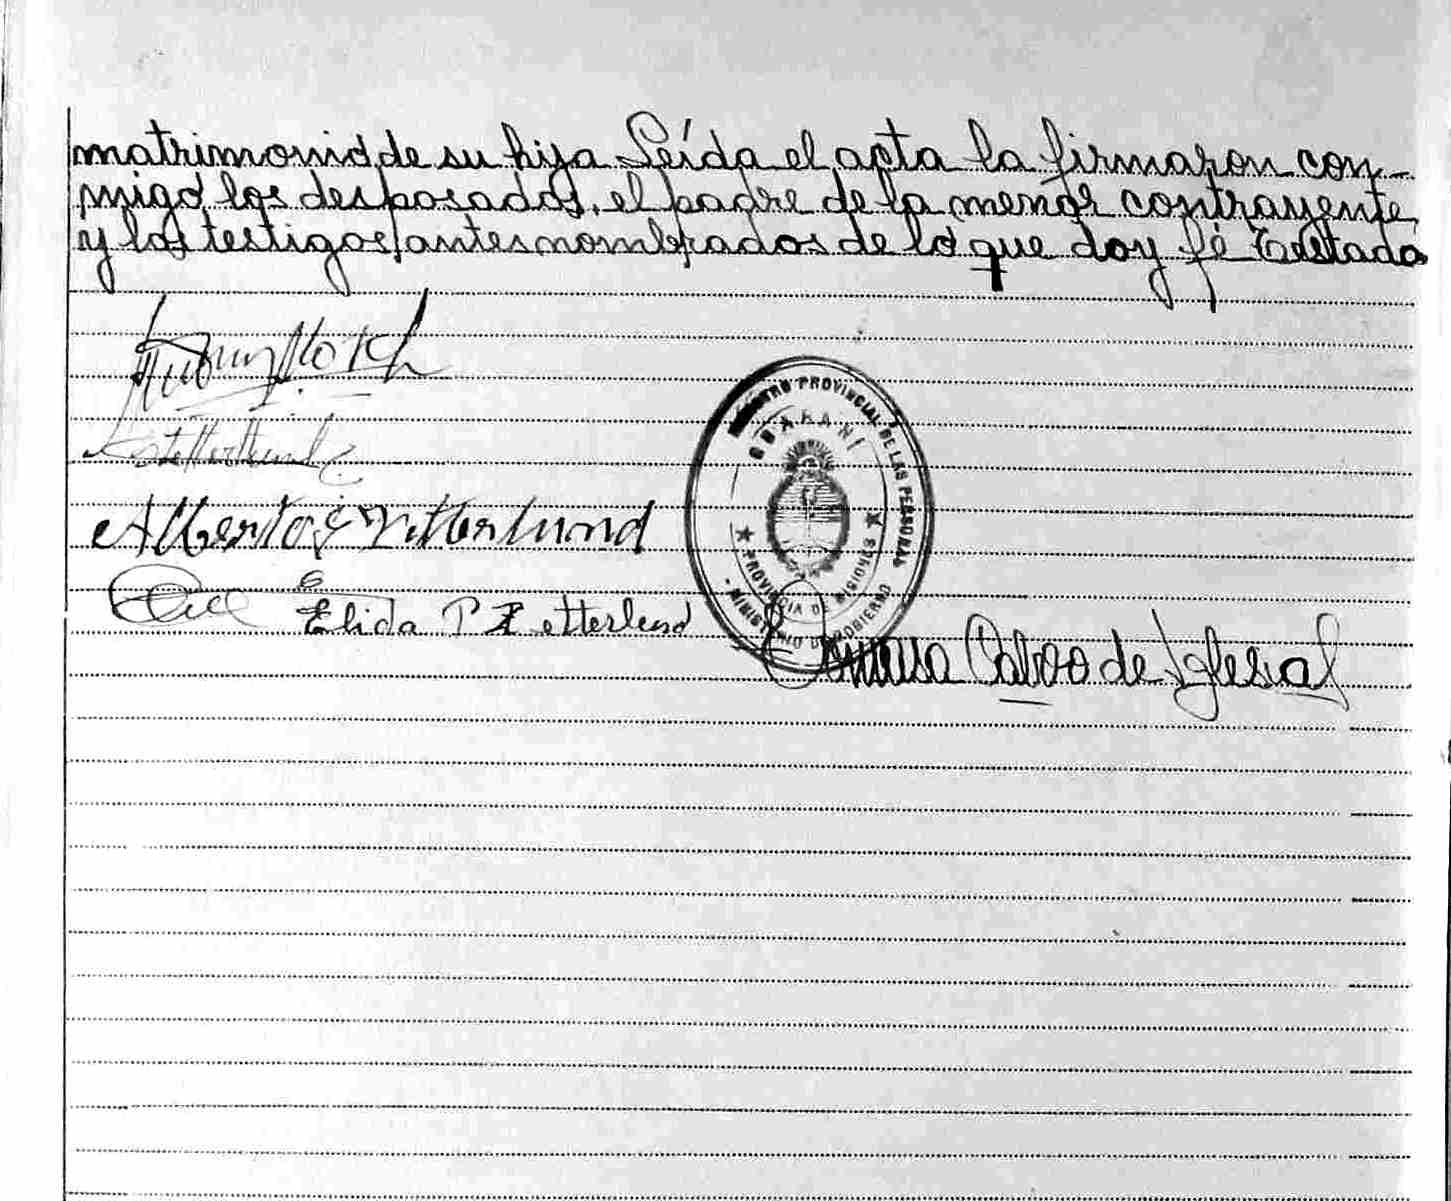 matrimonio de su hija Leída el acta la firmaron con-
migo los desposados, el padre de la menor contrayente
y los testigos antes nombrados de lo que doy fé Testado
Alberto Zetterlund
Elida T Zetterlund
REGISTRO PROVINCIAL DE LAS PERSONAS
GUARANI
PROVINCIA DE MISIONES
MINISTERIO DE GOBIERNO
Tomasa Calvo de Iglesias